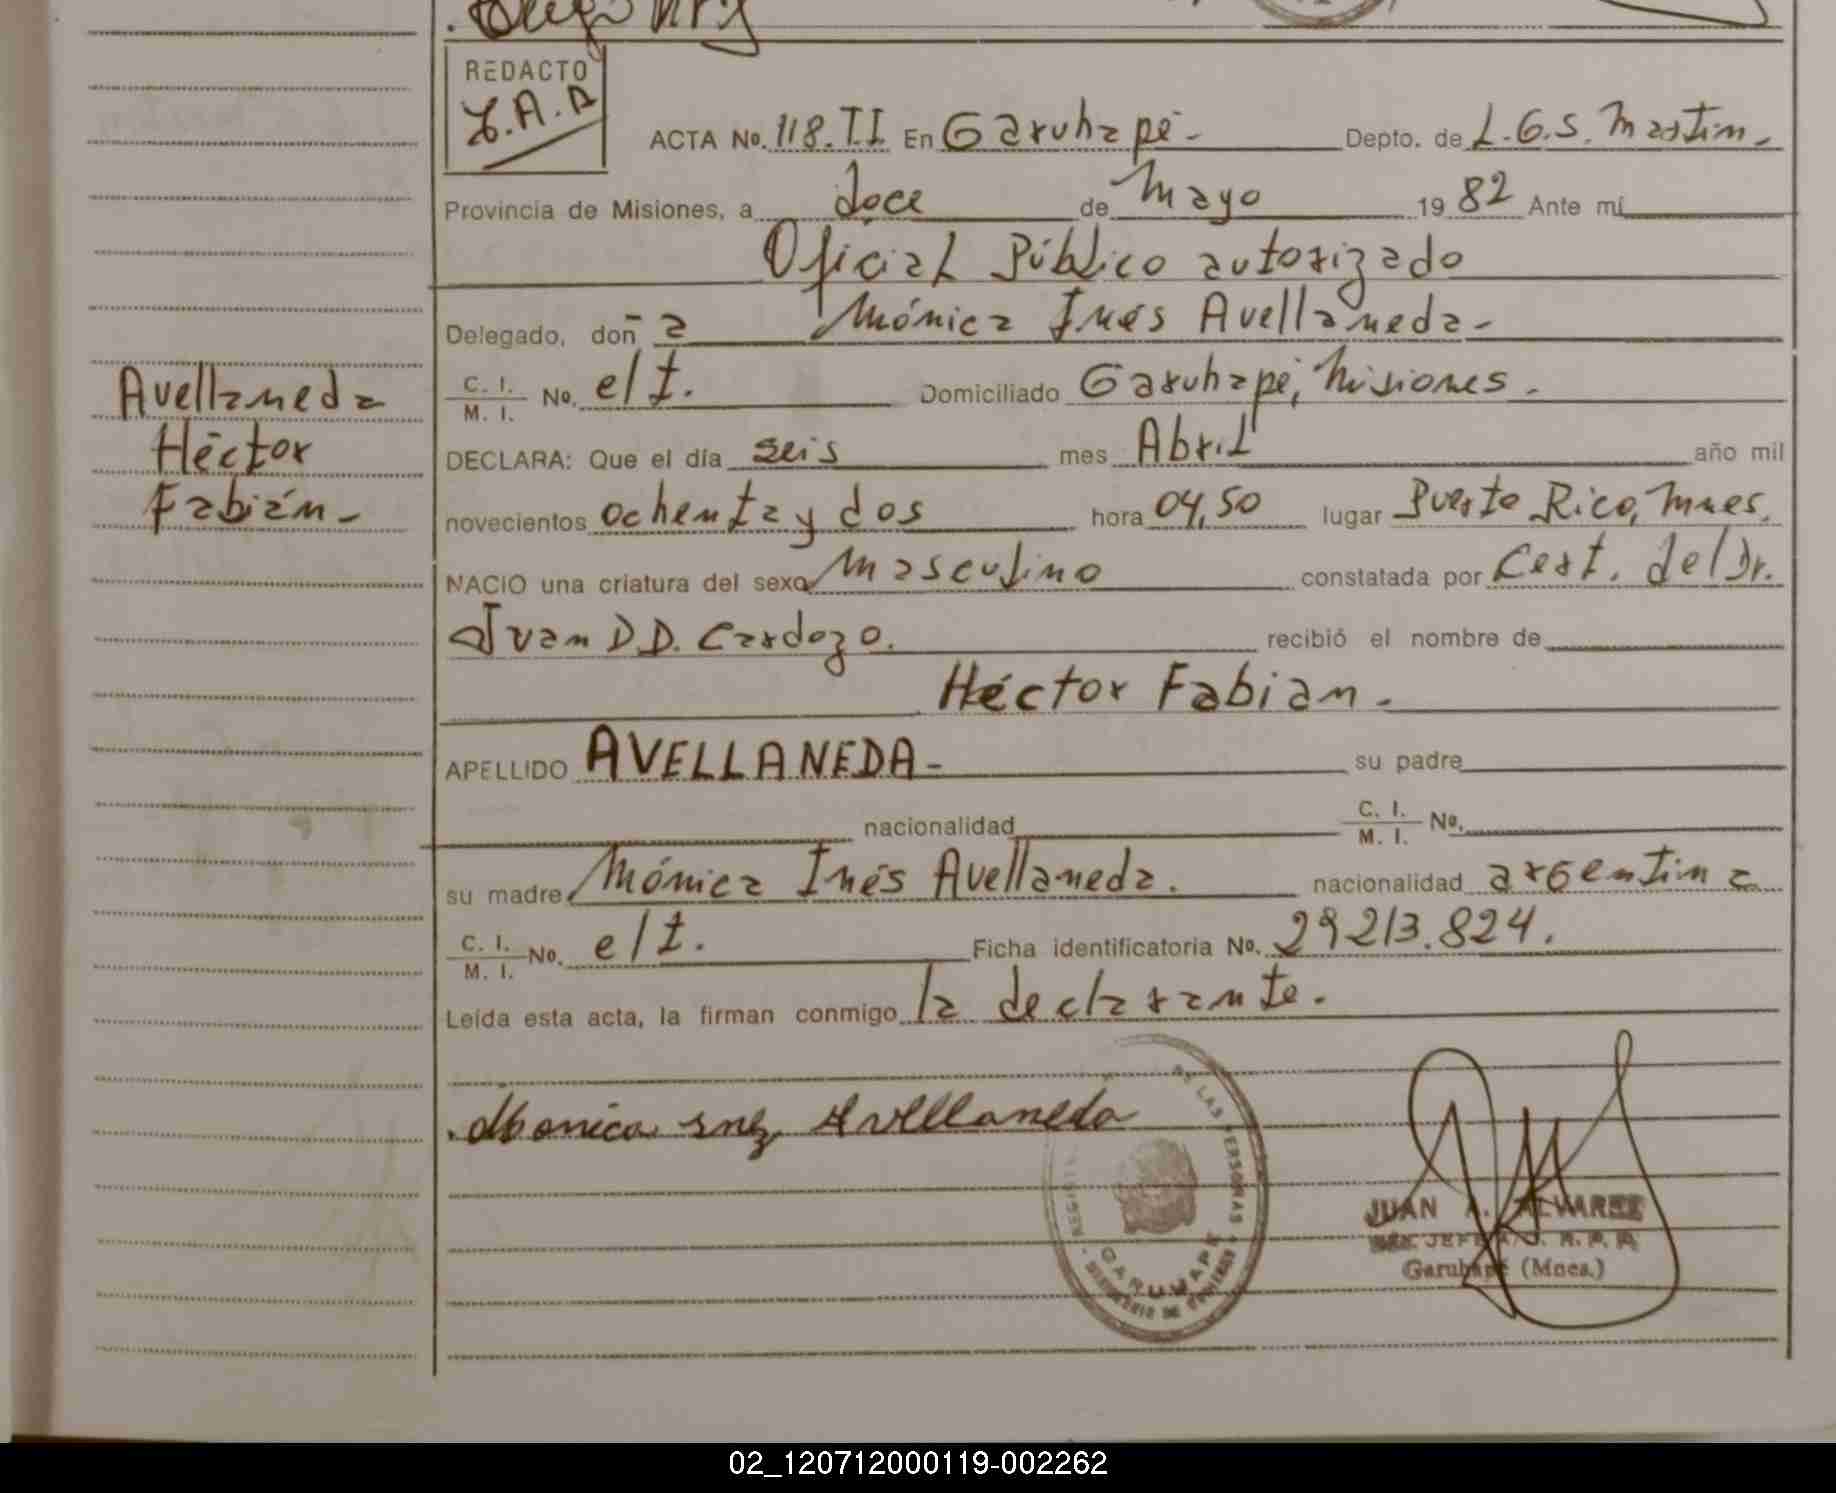 REDACTO
ACTA No. 118.T.I En Garuhapé- Depto. de L.G.S. Martin.
Provincia de Misiones, a doce de Mayo 19 82 Ante mí
Oficial Público autorizado
Delegado, don a Mónica Inés Avellaneda-
C. I.
M. I. No. e/t. Domiciliado Garuhapé, Misiones.
Avellaneda
Héctor
Fabián-
DECLARA: Que el día seis mes Abril año mil
novecientos ochenta y dos hora 04,50 lugar Puerto Rico, Mnes.
NACIO una criatura del sexo masculino constatada por Cert. del Dr.
Juan D.D. Cardozo. recibió el nombre de
Héctor Fabian.
APELLIDO AVELLANEDA- su padre
nacionalidad C. I.
M. I. No.
su madre Mónica Inés Avellaneda. nacionalidad argentina
C. I.
M. I. No. e/t. Ficha identificatoria No. 29213.824.
Leida esta acta, la firman conmigo la declarante.
Monica Inez Avellaneda
DE LAS PERSONAS
GARUHAPE
JUAN A. ALVAREZ
JEFE
Garuhapé (Mnes.)
02_120712000119-002262